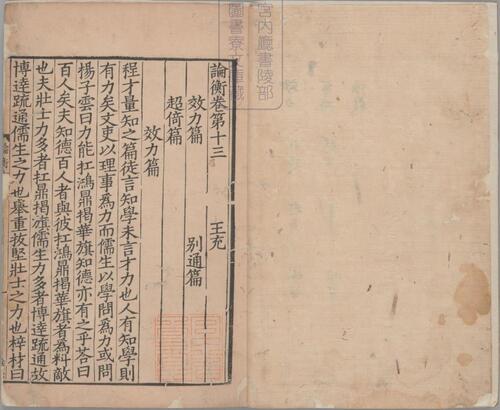 宮内廳書陵部
圖書寮文庫藏
論衡卷第十三　王充
效力篇　别通篇
超倚篇
效力篇
程才量知之篇徒言知學未言才力也人有知學則
有力矣文吏以理事爲力而儒生以學問爲力或問
揚子雲曰力能扛鴻鼎揭華旗知德亦有之乎荅曰
百人矣夫知德百人者與彼扛鴻鼎揭華旗者爲料敵
也夫壯士力多者扛鼎揭旗儒生力多者博達疏通故
博達疏通儒生之力也舉重拔堅壯士之力也梓材曰